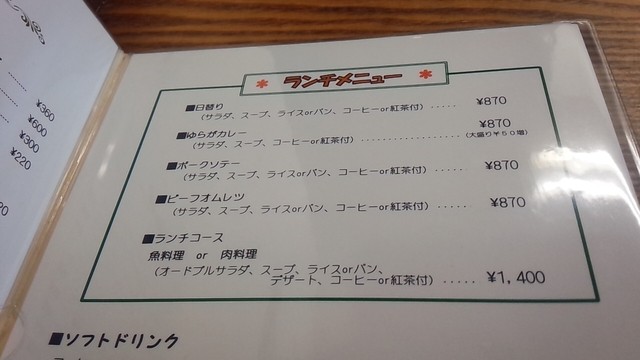 ¥360
¥600
¥300
¥220
* ランチメニュー *
■日替り
(サラダ、スープ、ライスorパン、コーヒーor紅茶付) ..... ¥870
■ゆらがカレー ¥870
(サラダ、スープ、コーヒーor紅茶付) .................. (大盛り¥50増)
■ポークソテー
(サラダ、スープ、ライスorパン、コーヒーor紅茶付) ..... ¥870
■ビーフオムレツ
(サラダ、スープ、ライスorパン、コーヒーor紅茶付) ..... ¥870
■ランチコース
魚料理 or 肉料理
(オードブルサラダ、スープ、ライスorパン、
デザート、コーヒーor紅茶付) ..... ¥1,400
■ソフトドリンク